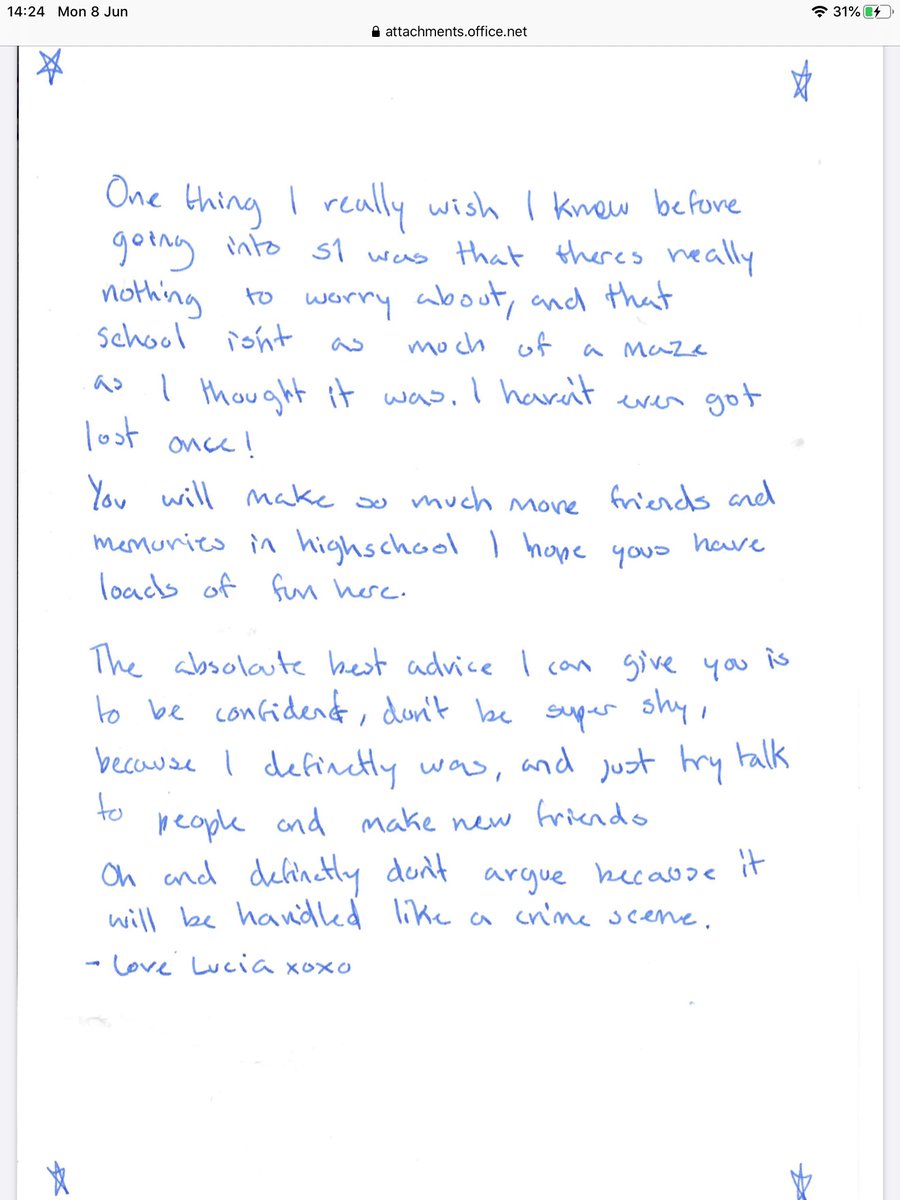 14:24 Mon 8 Jun 31%
attachments.office.net
One thing I really wish I knew before
going into S1 was that theres really
nothing to worry about, and that
school isn't as much of a maze
as I thought it was. I haven't even got
lost once!
You will make so much more friends and
memories in highschool I hope yous have
loads of fun here.
The absoloute best advice I can give you is
to be confident, don't be super shy,
because I definetly was, and just try talk
to people and make new friends
Oh and definetly don't argue because it
will be handled like a crime scene.
- Love Lucia xoxo